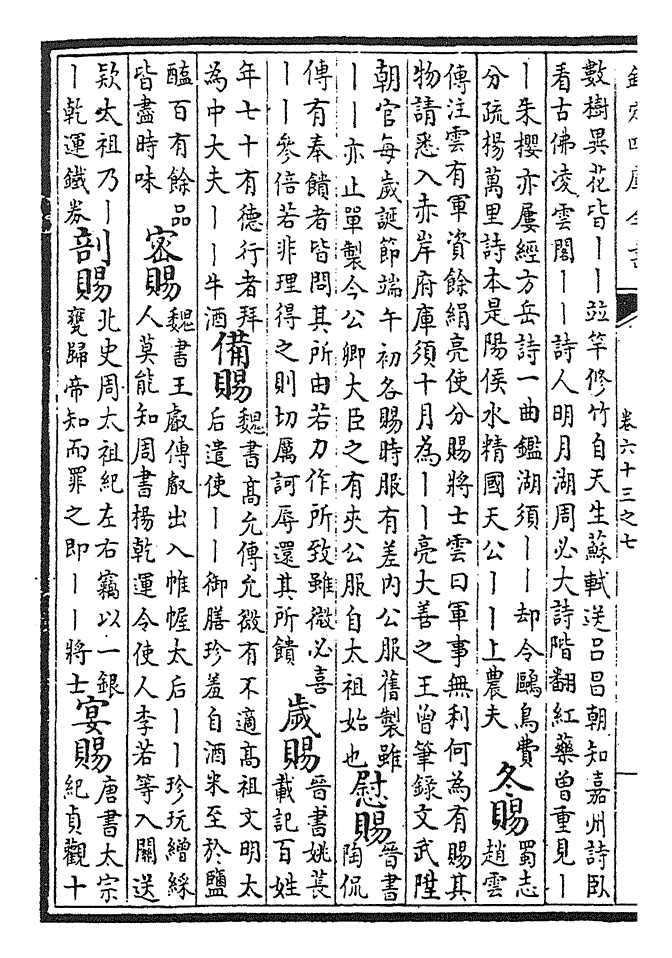 欽定四庫全書
卷六十三之七
數樹異花皆丨丨竝竿修竹自天生蘇軾送呂昌朝知嘉州詩臥
看古佛凌雲閣丨丨詩人明月湖周必大詩階翻紅藥曾重見丨
丨朱櫻亦屢經方岳詩一曲鑑湖須丨丨却令鷗鳥費
分疏楊萬里詩本是陽侯水精國天公丨丨上農夫
冬賜
蜀志
趙雲
傳注雲有軍資餘絹亮使分賜將士雲曰軍事無利何為有賜其
物請悉入赤岸府庫須十月為丨丨亮大善之王曾筆錄文武陞
朝官每歲誕節端午初各賜時服有差內公服舊製雖
丨丨亦止單製今公卿大臣之有夾公服自太祖始也
慰賜
晉書
陶侃
傳有奉饋者皆問其所由若力作所致雖微必喜
丨丨參倍若非理得之則切厲訶辱還其所饋
歲賜
晉書姚萇
載記百姓
年七十有德行者拜
為中大夫丨丨牛酒
備賜
魏書高允傳允微有不適高祖文明太
后遣使丨丨御膳珍羞自酒米至於鹽
醯百有餘品
皆盡時味
密賜
魏書王叡傳叡出入帷幄太后丨丨珍玩繒綵
人莫能知周書楊乾運令使人李若等入關送
欵太祖乃丨
丨乾運鐵券
剖賜
北史周太祖紀左右竊以一銀
甕歸帝知而罪之即丨丨將士
宴賜
唐書太宗
紀貞觀十